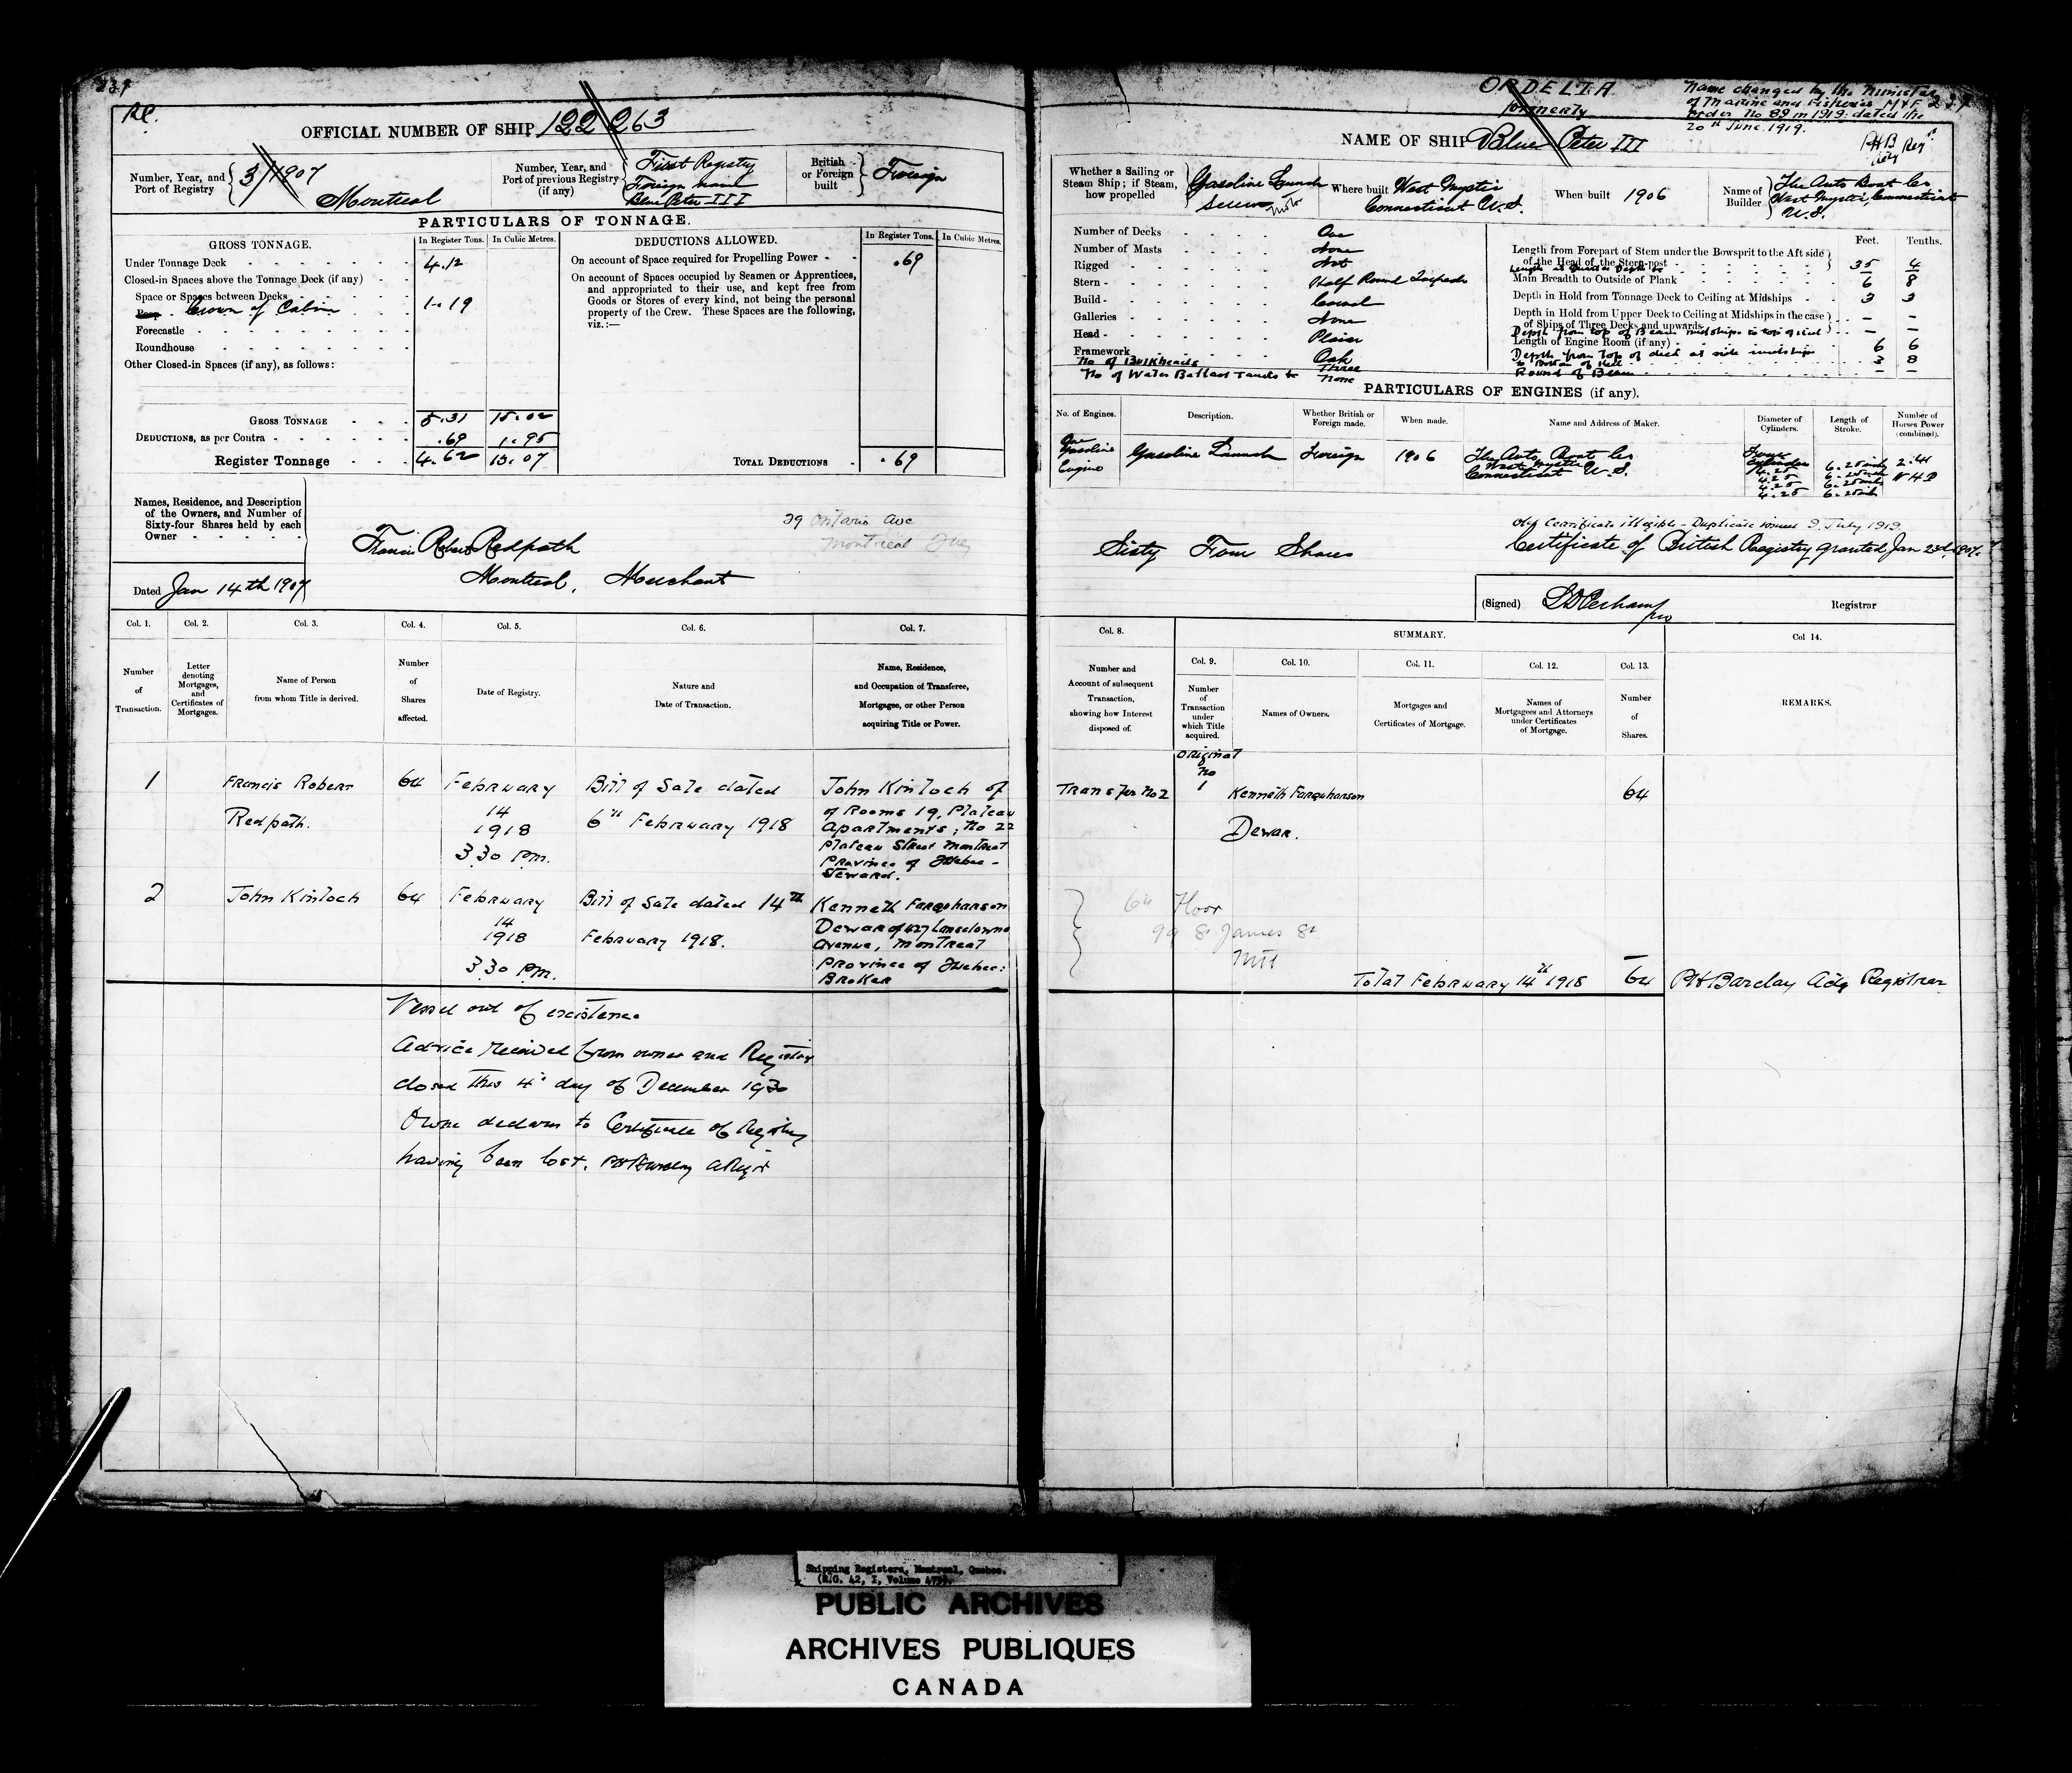 239
RC.
OFFICIAL NUMBER OF SHIP 122 263
Number, Year, and Port of Registry
3/1907
Montreal
Number, Year, and Port of previous Registry (if any)
First Registry
Foreign name
Blue Peter III
British or Foreign built
Foreign
PARTICULARS OF TONNAGE.
GROSS TONNAGE.
In Register Tons.
In Cubic Metres.
DEDUCTIONS ALLOWED.
In Register Tons.
In Cubic Metres.
Under Tonnage Deck 4.12
Closed-in Spaces above the Tonnage Deck (if any)
Space or Spaces between Decks
Poop Crown of Cabin 1.19
Forecastle
Roundhouse
Other Closed-in Spaces (if any), as follows:
GROSS TONNAGE 5.31 15.02
DEDUCTIONS, as per Contra .69 1.95
Register Tonnage 4.62 13.07
On account of Space required for Propelling Power .69
On account of Spaces occupied by Seamen or Apprentices,
and appropriated to their use, and kept free from
Goods or Stores of every kind, not being the personal
property of the Crew. These Spaces are the following,
viz.:—
TOTAL DEDUCTIONS .69
Names, Residence, and Description
of the Owners, and Number of
Sixty-four Shares held by each
Owner
Francis Robert Redpath
Montreal, Merchant
29 Ontario Ave
Montreal Que
Dated Jan 14th 1907
Col. 1.
Col. 2.
Col. 3.
Col. 4.
Col. 5.
Col. 6.
Col. 7.
Number of Transaction.
Letter denoting Mortgages, and Certificates of Mortgages.
Name of Person from whom Title is derived.
Number of Shares affected.
Date of Registry.
Nature and Date of Transaction.
Name, Residence, and Occupation of Transferee, Mortgagee, or other Person acquiring Title or Power.
1
Francis Robert
Redpath.
64
February
14
1918
3.30 P.m.
Bill of Sale dated
6th February 1918
John Kinloch of
of Rooms 19, Plateau
Apartments; No 22
Plateau Street Montreal
Province of Quebec -
Steward.
2
John Kinloch
64
February
14
1918
3.30 P.m.
Bill of Sale dated 14th
February 1918.
Kenneth Farquharson
Dewar of 427 Lansdowne
Avenue, Montreal
Province of Quebec:
Broker
Vessel out of existence
Advice received from owner and Registry
closed this 4th day of December 1930
Owner declares to Certificate of Registry
having been lost.
ORDELIA
formerly
Name changed by the Minister
of Marine and Fisheries M&F
Order No 89 in 1919: dated the
20th June 1919.
239
PHB
NAME OF SHIP Blue Peter III
Whether a Sailing or Steam Ship; if Steam, how propelled
Gasoline Launch
Screw
Where built West Mystic
Connecticut U.S.
When built 1906
Name of Builder
The Auto Boat Co
West Mystic, Connecticut
U.S.
Number of Decks One
Number of Masts None
Rigged Not
Stern Half Round Torpedo
Build Carvel
Galleries None
Head Plain
Framework Oak
No of Bulkheads Three
No of Water Ballast Tanks None
Feet. Tenths.
Length from Forepart of Stem under the Bowsprit to the Aft side
of the Head of the Stern-post 35 4
Main Breadth to Outside of Plank 6 8
Depth in Hold from Tonnage Deck to Ceiling at Midships 3 3
Depth in Hold from Upper Deck to Ceiling at Midships in the case
of Ships of Three Decks and upwards — —
Depth from top of Beam midships to top of keel
Length of Engine Room (if any) 6 6
Depth from top of deck at side midships
to bottom of keel 3 8
Round of Beam — —
PARTICULARS OF ENGINES (if any).
No. of Engines.
Description.
Whether British or Foreign made.
When made.
Name and Address of Maker.
Diameter of Cylinders.
Length of Stroke.
Number of Horses Power (combined).
One
Gasoline
Engine
Gasoline Launch
Foreign
1906
The Auto Boat Co
West Mystic
Connecticut U.S.
Four
Cylinders
4.25
4.25
4.25
4.25
6.25 inch
6.25 inch
6.25 inch
6.25 inch
2.41
N H P
Sixty Four Shares
Old Certificate illegible - Duplicate issued 9 July 1919.
Certificate of British Registry granted Jan 23d. 1907.
(Signed)
Registrar
Col. 8.
SUMMARY.
Col. 9.
Col. 10.
Col. 11.
Col. 12.
Col. 13.
Col 14.
Number and Account of subsequent Transaction, showing how Interest disposed of.
Number of Transaction under which Title acquired.
Names of Owners.
Mortgages and Certificates of Mortgage.
Names of Mortgagees and Attorneys under Certificates of Mortgage.
Number of Shares.
REMARKS.
Original
No
1
Transfer No 2
Kenneth Farquharson
Dewar.
64
6th Floor
99 St James St
Mtl
Total February 14th 1918 64
PH Barclay Adg Registrar
Shipping Registers, Montreal, Quebec.
(R.G. 42, I, Volume 475).
PUBLIC ARCHIVES
ARCHIVES PUBLIQUES
CANADA